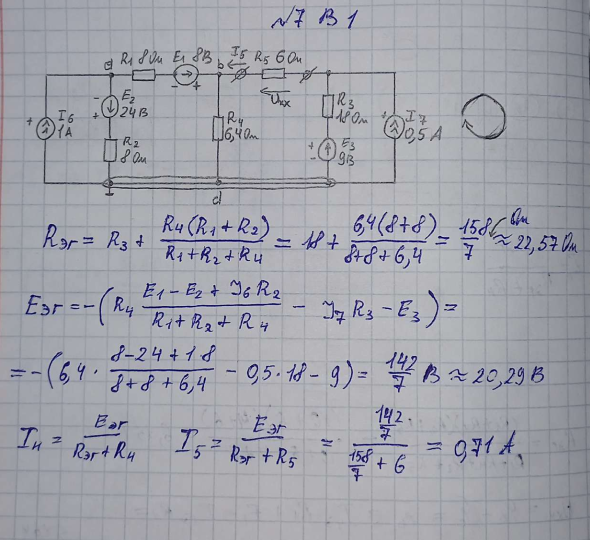 √7 В 1
a R1 8Ом E1 8В b I5 R5 6Ом
- + Uхх
+ I6 1А
- E2 + 24В
R2 8Ом
R4 6,4Ом
R3 18Ом
+ E3 - 9В
+ I7 0,5А
d
Rэг = R3 + R4(R1+R2) / R1+R2+R4 = 18 + 6,4(8+8) / 8+8+6,4 = 158/7 Ом ≈ 22,57 Ом
Eэг = -(R4 E1-E2+J6R2 / R1+R2+R4 - J7R3-E3) =
= -(6,4 · 8-24+1·8 / 8+8+6,4 - 0,5·18-9) = 142/7 В ≈ 20,29 В
Iн = Eэг / Rэг+Rн I5 = Eэг / Rэг+R5 = 142/7 / 158/7 + 6 = 0,71 А